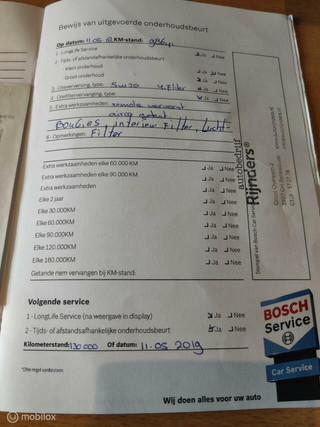 Bewijs van uitgevoerde onderhoudsbeurt
Op datum: 11.05.18 KM-stand:
1 - LongLife Service Ja Nee
2 - Tijds- of afstandsafhankelijke onderhoudsbeurt
Klein onderhoud Ja Nee
Groot onderhoud Ja Nee
3 - Olieverversing, type: 5W30 Filter Ja Nee
4 - Ja Nee
5 - Extra werkzaamheden: remolie ververst Ja Nee
Bougies, interieur Filter, Lucht-
6 - Opmerkingen: Filter
Extra werkzaamheden elke 60.000 KM Ja Nee
Extra werkzaamheden elke 90.000 KM Ja Nee
Extra werkzaamheden Ja Nee
Elke 2 jaar Ja Nee
Elke 30.000KM Ja Nee
Elke 60.000KM Ja Nee
Elke 90.000KM Ja Nee
Elke 120.000KM Ja Nee
Elke 180.000KM Ja Nee
Getande riem vervangen bij KM-stand:
autobedrijf
Rijnders
Stempel van Bosch Car Service
Volgende service
1 - LongLife Service (na weergave in display) Ja Nee
2 - Tijds- of afstandsafhankelijke onderhoudsbeurt Ja Nee
Kilometerstand: 130000 Of datum: 11-05-2019
BOSCH
Service
Car Service
Wij doen alles voor uw auto
© mobilox